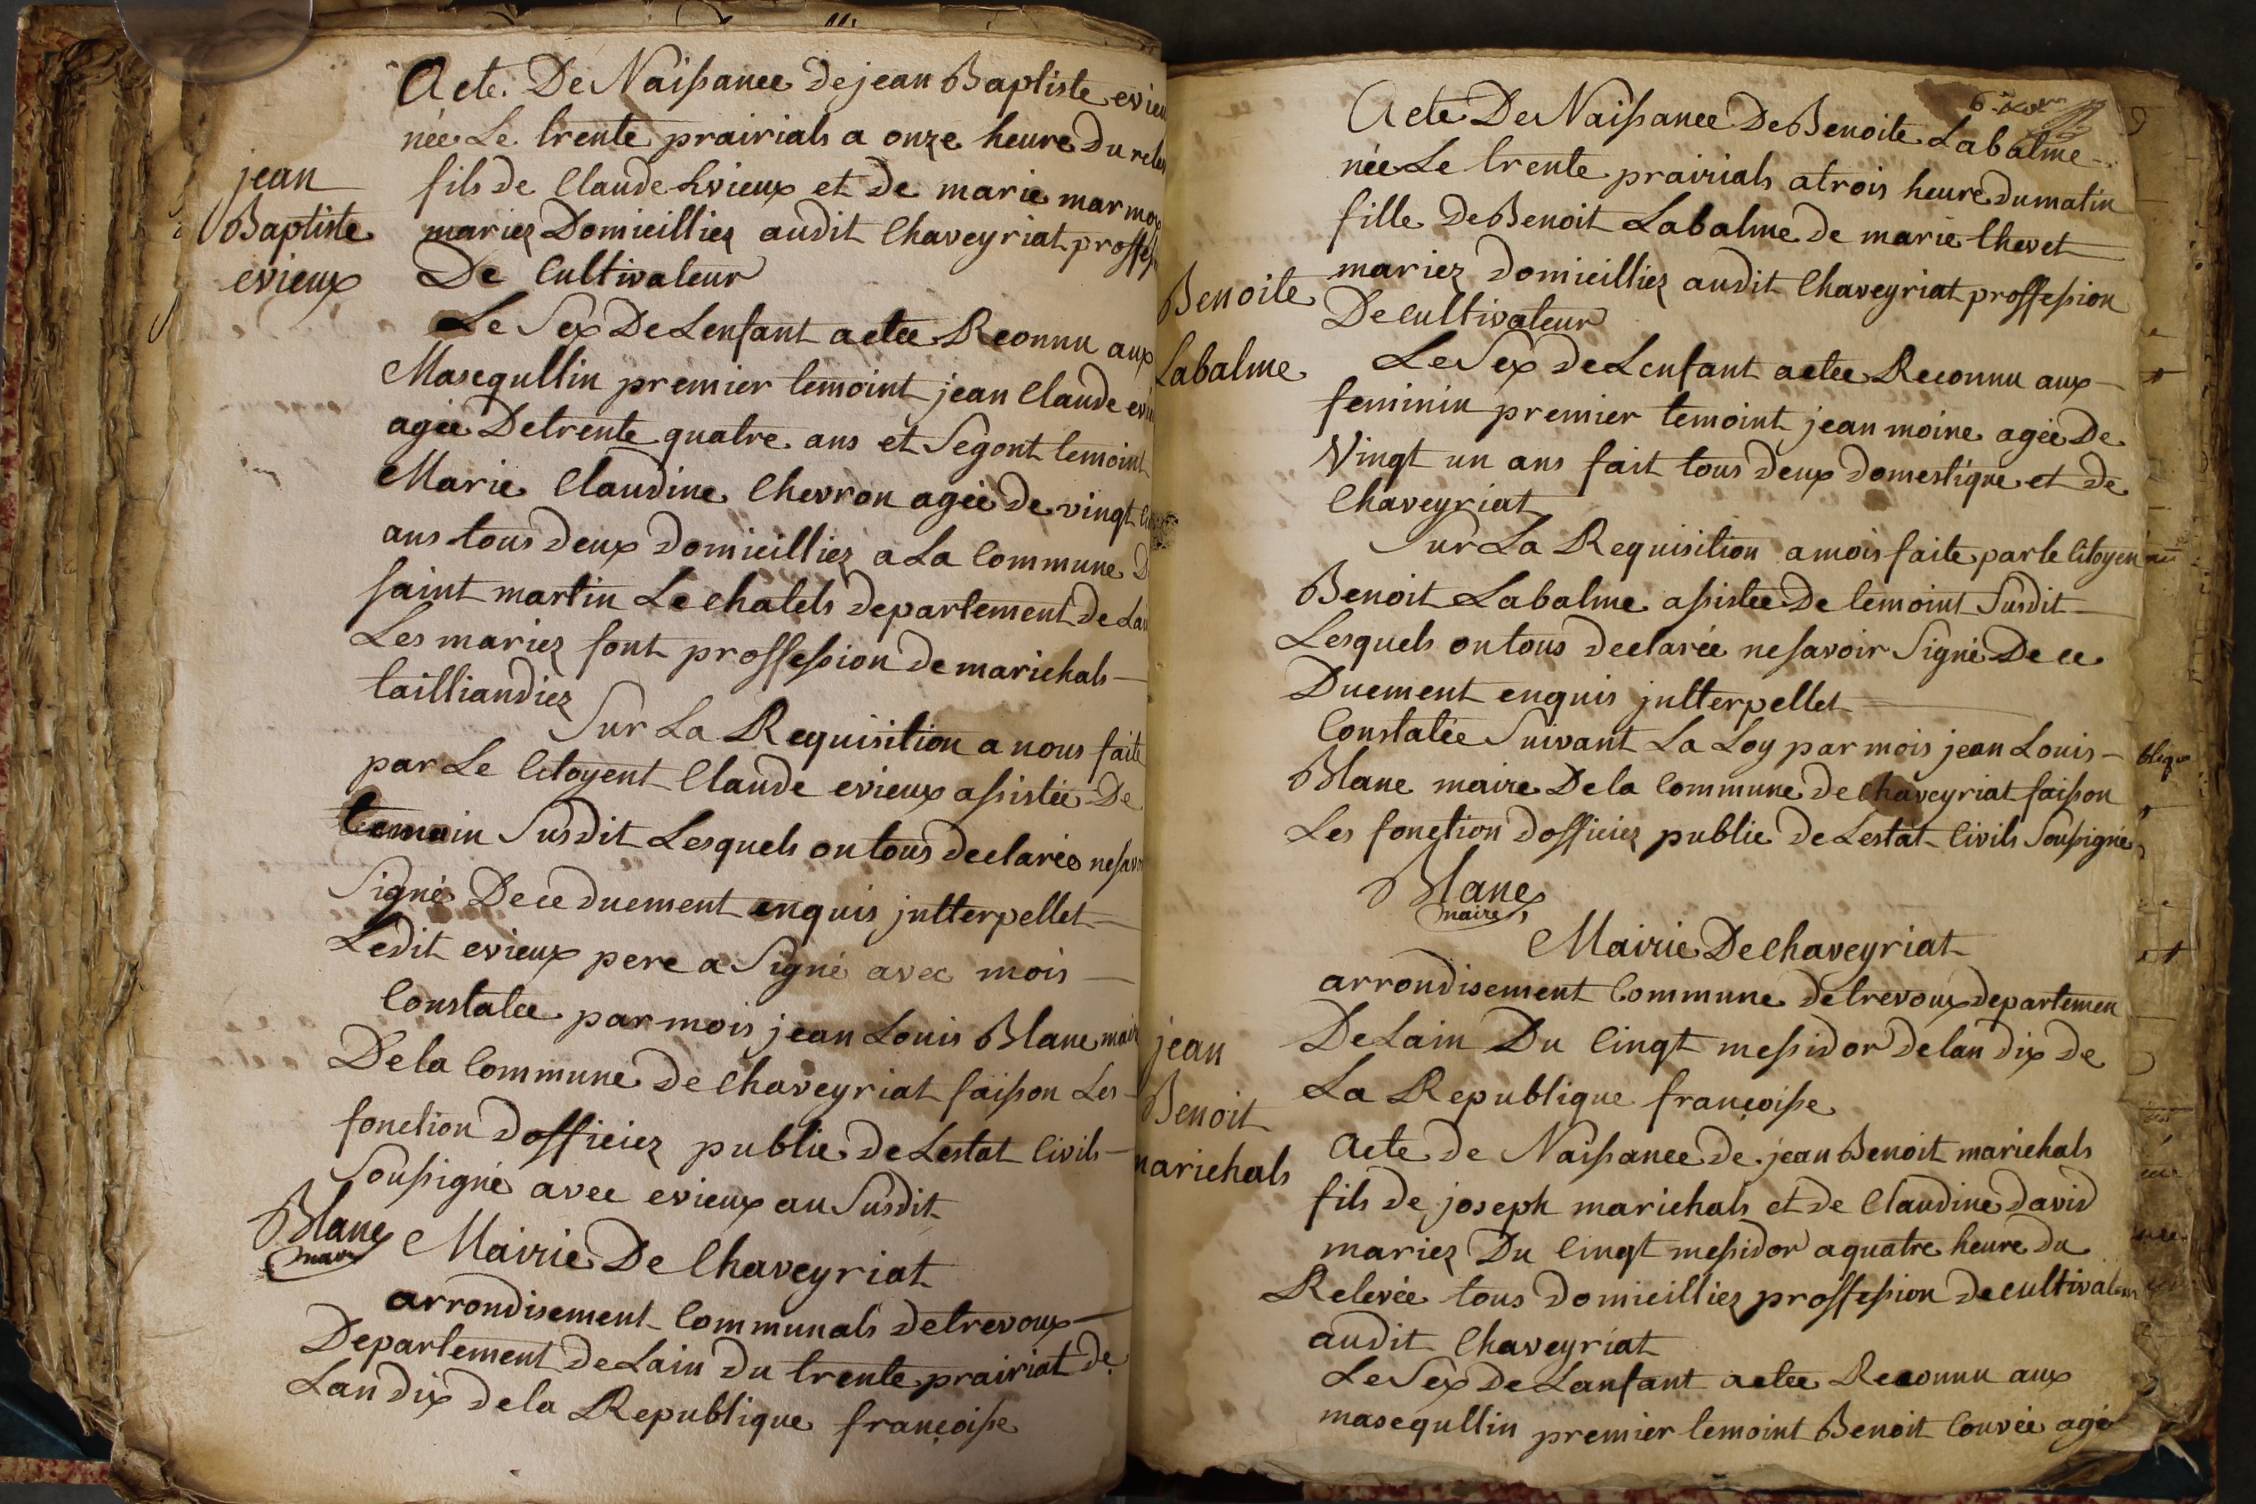 Acte De Naissance de jean Baptiste evieu
née Le trente prairials a onze heure Du rele
fils de Claude Evieux et de marie marmon
mariez Domicilliez audit Chaveyriat proffess
De Cultivateur
jean
Baptiste
evieux
Le Sex De Lenfant a etee Reconnu aux
Masequllin premier temoint jean Claude evieu
agée De trente quatre ans et Segont temoint
Marie Claudine Chevron agée de vingt
ans tous deux domicilliez a La Commune D
saint martin Le chatels departement de Lain
Les mariez font proffession de marichals
tailliandiez
Sur La Requisition a nous faite
par Le Citoyent Claude evieux assistée De
temoin Susdit Lesquels on tous declarée nesavoi
Signé De ce duement enquis jntterpellet
Ledit evieux pere a Signé avec mois
Constatee par mois jean Louis Blanc maire
De la Commune de Chaveyriat faisson Les
fonction dofficiez public de Lestat Civils
Soussigné avec evieux au Susdit
Blanc
maire
Mairie De Chaveyriat
arrondisement Communals de trevoux
Departement de Lain du trente prairiat de
Lan dix de la Republique françoisse
Acte De Naissance De Benoite Labalme
née Le trente prairials a trois heure du matin
fille De Benoit Labalme de marie Chevet
mariez domicilliez audit Chaveyriat proffession
De cultivateur
Benoite
Labalme
Le Sex de Lenfant a etee Reconnu aux
feminin premier temoint jean moine agée De
Vingt un ans fait tous deux domestique et de
Chaveyriat
Sur La Requisition a mois faite par le Citoyen
Benoit Labalme assistée De temoint Susdit
Lesquels on tous declarée nesavoir Signé De ce
Duement enquis jntterpellet
Constatée Suivant La Loy par mois jean Louis
Blanc maire De la Commune de Chaveyriat faisson
Les fonction dofficiez public de Lestat Civils Soussigné
Blanc
maire
Mairie De Chaveyriat
arrondisement Commune de trevoux departemen
De Lain Du Cinqt messidor de lan dix de
La Republique françoisse
jean
Benoit
marichals
Acte de Naissance de jean Benoit marichals
fils de joseph marichals et de Claudine david
mariez Du Cinqt messidor a quatre heure du
Relevée tous domicilliez proffession de cultivateur
audit Chaveyriat
Le Sex De Lanfant a etee Reconnu aux
masequllin premier temoint Benoit Couvée agé